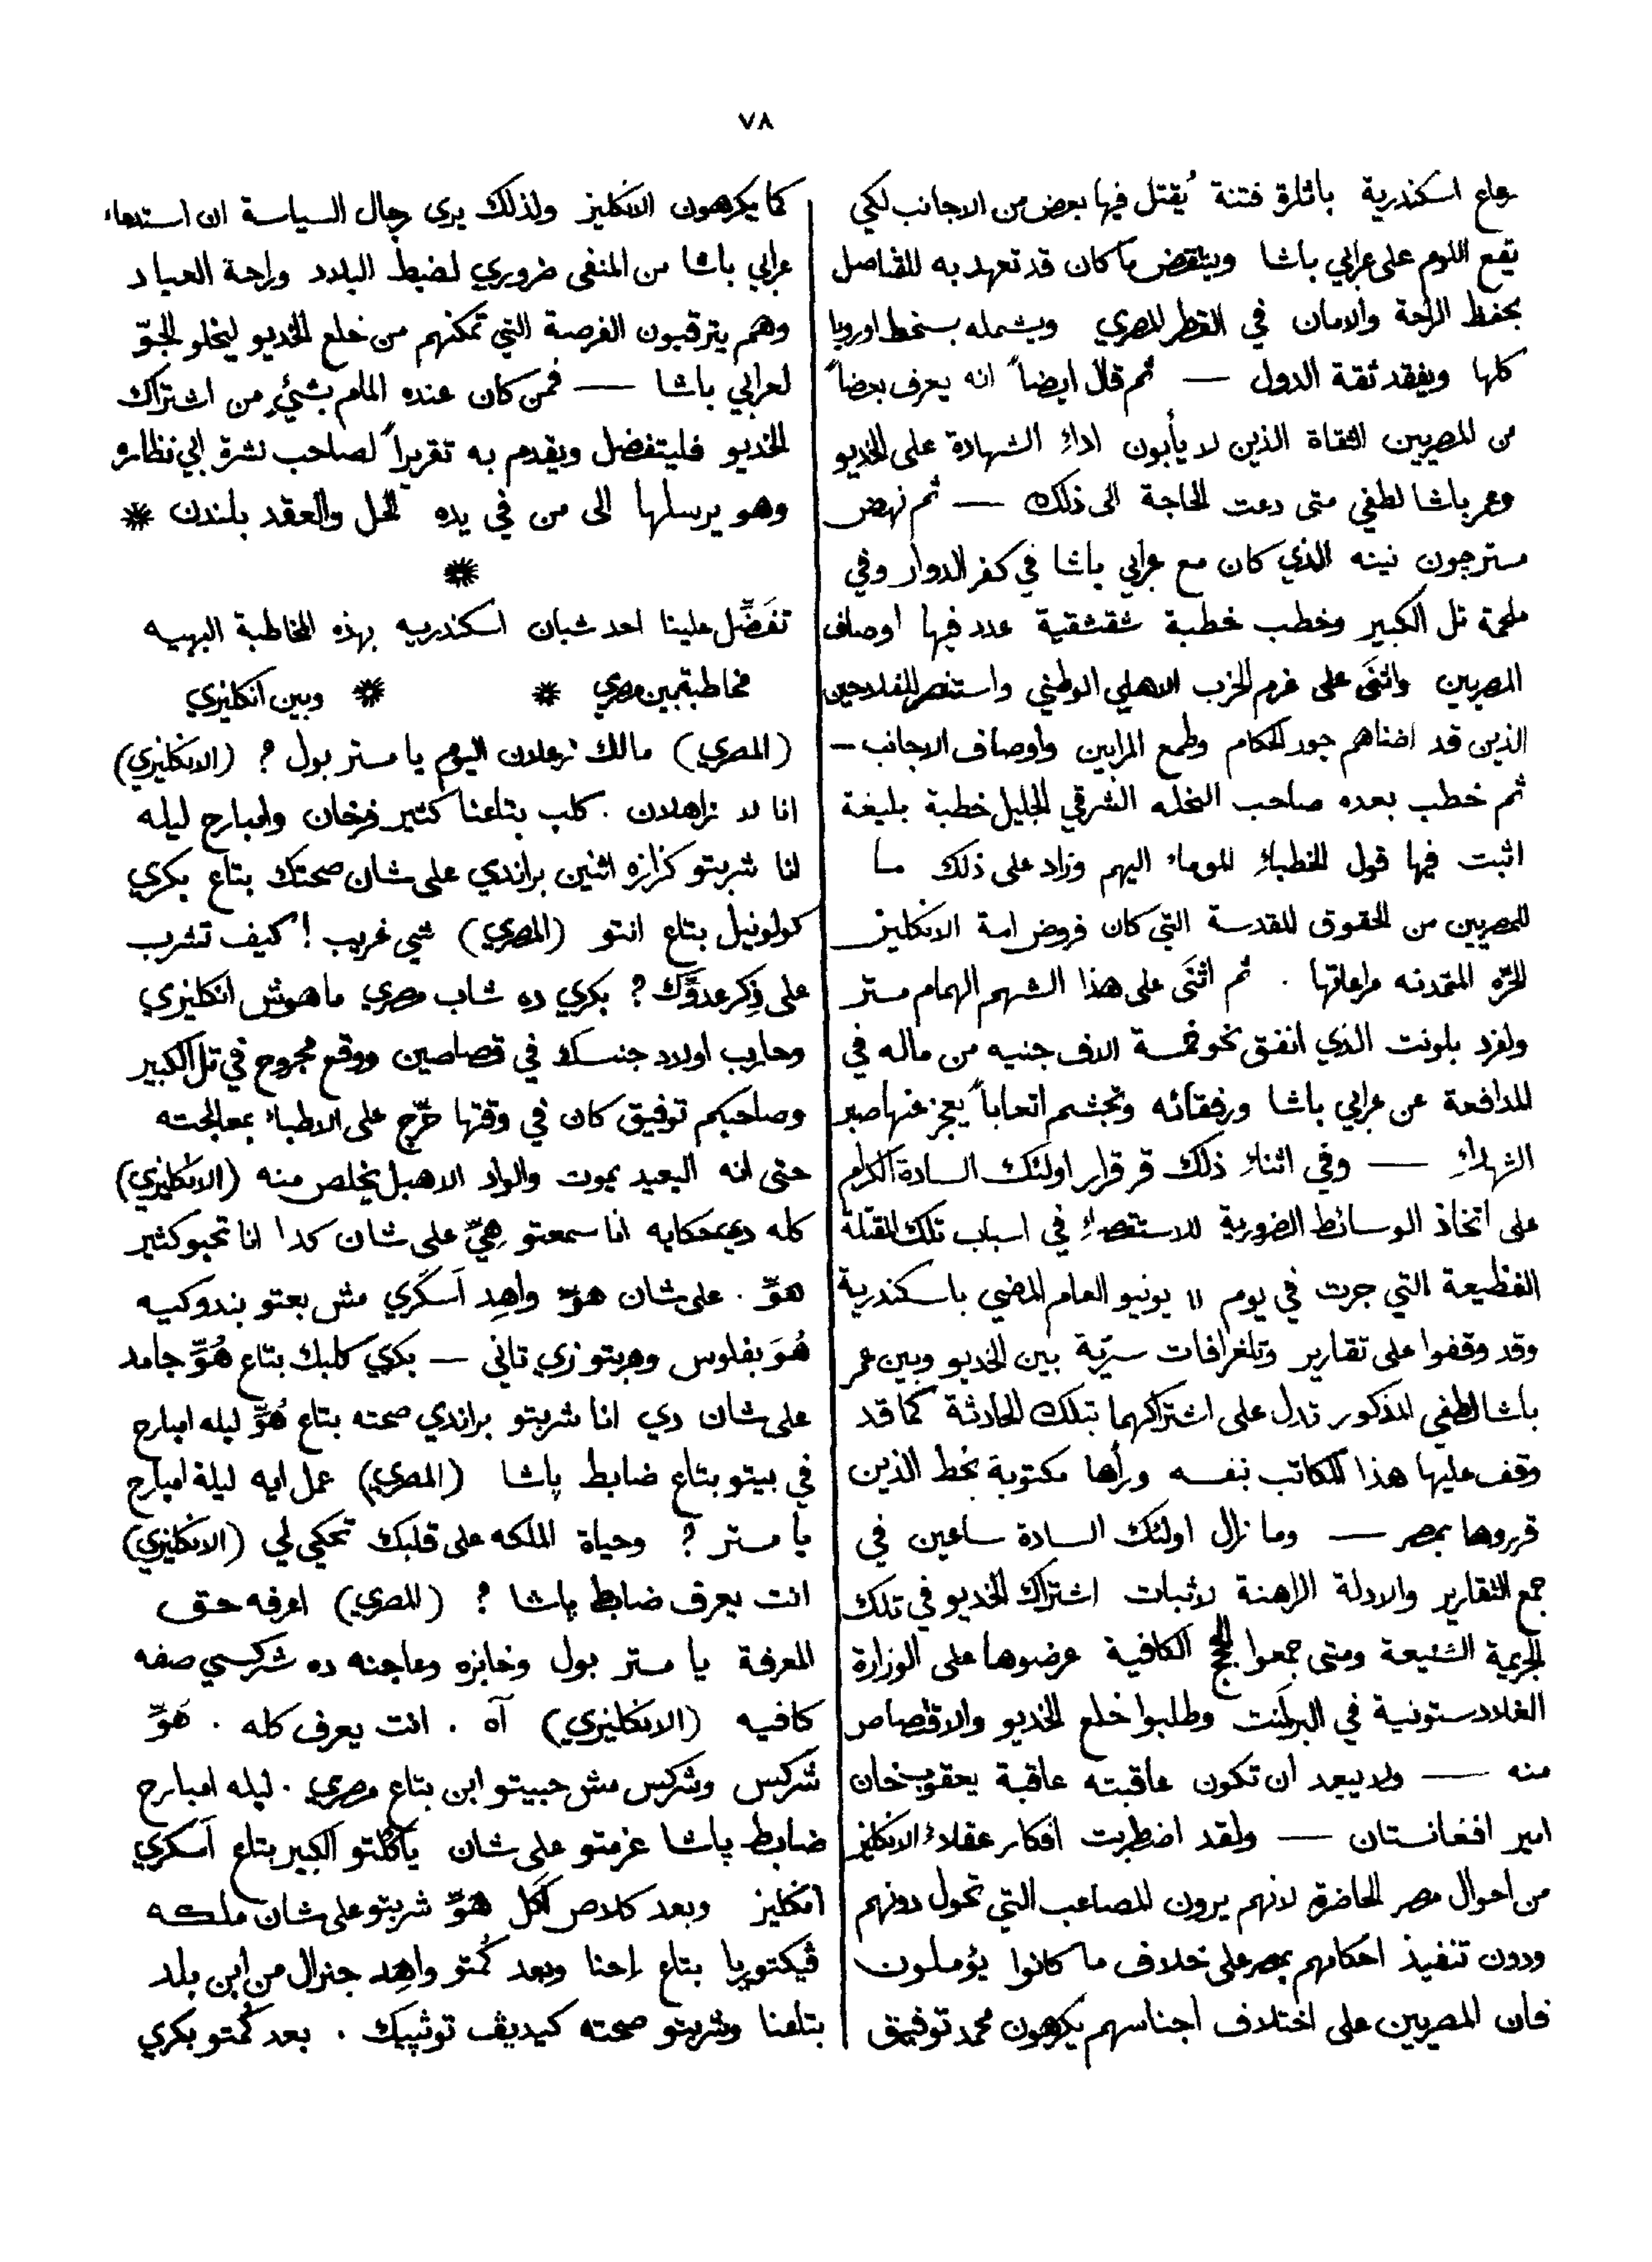 ٧٨
رعاع اسكندرية باثارة فتنة يُقتل فيها بعض من الاجانب لكي
يقع اللوم على عرابي باشا وينتقض ما كان قد تعهد به للقناصل
بحفظ الراحة والامان في القطر المصري ويشمله بسخط اوروپا
كلها ويفقد ثقة الدول — ثم قال ايضاً انه يعرف بعضاً
من المصريين الثقاة الذين لا يأبون اداء الشهادة على الخديو
وعمر باشا لطفي متى دعت الحاجة الى ذلك — ثم نهض
مستر جون نينه الذي كان مع عرابي باشا في كفر الدوار وفي
ملحمة تل الكبير وخطب خطبة شقشقية عدد فيها اوصاف
المصريين واثنَى على عزم الحزب الاهلي الوطني واستنصر للفلاحين
الذين قد اضناهم جور الحكام وطمع المرابين واوصاف الاجانب —
ثم خطب بعده صاحب النحله الشرقي الجليل خطبة بليغة
اثبت فيها قول الخطباء الموماء اليهم وزاد على ذلك ما
للمصريين من الحقوق المقدسة التي كان فروض امة الانكليز
الحرّه المتمدنه مراعاتها . ثم اثنَى على هذا الشهم الهمام مستر
ولفرد بلونت الذي انفق نحو خمسة الاف جنيه من ماله في
المدافعة عن عرابي باشا ورفقائه وتجشم اتعاباً يعجز عنها صبر
الشهداء — وفي اثناء ذلك قر قرار اولئك السادة الكرام
على اتخاذ الوسائط الضرورية للاستقصاء في اسباب تلك المقتلة
الفظيعة التي جرت في يوم ١١ يونيو العام المضي باسكندرية
وقد وقفوا على تقارير وتلغرافات سريّة بين الخديو وبين عمر
باشا لطفي المذكور تدل على اشتراكهما بتلك الحادثة كما قد
وقف عليها هذا الكاتب نفسه ورأها مكتوبة بخط الذين
قرروها بمصر — وما زال اولئك السادة ساعين في
جمع التقارير والادلة الراهنة لاثبات اشتراك الخديو في تلك
الجريمة الشنيعة ومتى جمعوا الحجج الكافية عرضوها على الوزارة
الغلادستونية في البرلمَنت وطلبوا خلع الخديو والاقتصاص
منه — ولا يبعد أن تكون عاقبته عاقبة يعقوب خان
امير افغانستان — ولقد اضطربت افكار عقلاء الانكليز
من احوال مصر الحاضرة لانهم يرون المصاعب التي تحول دونهم
ودون تنفيذ احكامهم بمصر على خلاف ما كانوا يؤملون
فان المصريين على اختلاف اجناسهم يكرهون محمد توفيق
كما يكرهون الانكليز ولذلك يرى رجال السياسة ان استدعاء
عرابي باشا من المنفى ضروري لضبط البلاد وراحة العباد
وهم يترقبون الفرصة التي تمكنهم من خلع الخديو ليخلو الجوّ
لعرابي باشا — فمن كان عنده المام بشيءٍ من اشتراك
الخديو فليتفضل ويقدم به تقريراً لصاحب نشرة ابي نظاره
وهو يرسلها الى من في يده الحل والعقد بلندن *
*
تفَضَّل علينا احد شبان اسكندريه بهذه المخاطبة البهيه
مخاطبة بين مصري * * وبين انكليزي
(المصري) مالك زعلان اليوم يا مستر بول ؟ (الانكليزي)
انا لا زاهلان . كلب بتاعنا كتير فرخان وامبارح ليله
انا شربتو كزازه اثنين براندي على شان صحتك بتاع بكري
كولونيل بتاع انتو (المصري) شي غريب ! كيف تشرب
على ذِكر عدوَّك ؟ بكري ده شاب مصري ماهوش انكليزي
وحارب اولاد جنسك في قصاصين ووقع مجروح في تل الكبير
وصاحبكم توفيق كان في وقتها حرّج على الاطباء بمعالجته
حتى انه البعيد يموت والواد الاهبل يخلص منه (الانكليزي)
كله دي حكايه انا سمعتو هِيِّ على شان كدا انا تحبو كثير
هوِّ . على شان هوّ واهِد اَسكَري مش بعتو بندوكيه
هُوَ بفلوس وهربتو زي تاني — بكري كلبك بتاع هُوِّ جامد
على شان دي انا شربتو براندي صحته بتاع هُوِّ ليله امبارح
في بيتو بتاع ضابط پاشا (المصري) عمل ايه ليلة امبارح
يا مستر ؟ وحياة الملكه على قلبك تحكي لي (الانكليزي)
انت يعرف ضابط پاشا ؟ (المصري) اعرفه حق
المعرفة يا مستر بول وخابزه وعاجنه ده شركسي صفه
كافيه (الانكليزي) آه . انت يعرف كله . هَوِّ
شركس وشركس مش حبيتو ابن بتاع مصري . ليله امبارح
ضابط پاشا عزمتو على شان ياكُلتو الكبير بتاع اَسكري
انكليز وبعد كلاص اَكَل هَوِّ شربتو على شان ملكه
ڤيكتوريا بتاع اِحنا وبعد كُمتو واهِد جنرال من ابن بلد
بتاعنا وشربتو صحته كيديڤ توڤيك . بعد كُمتو بكري